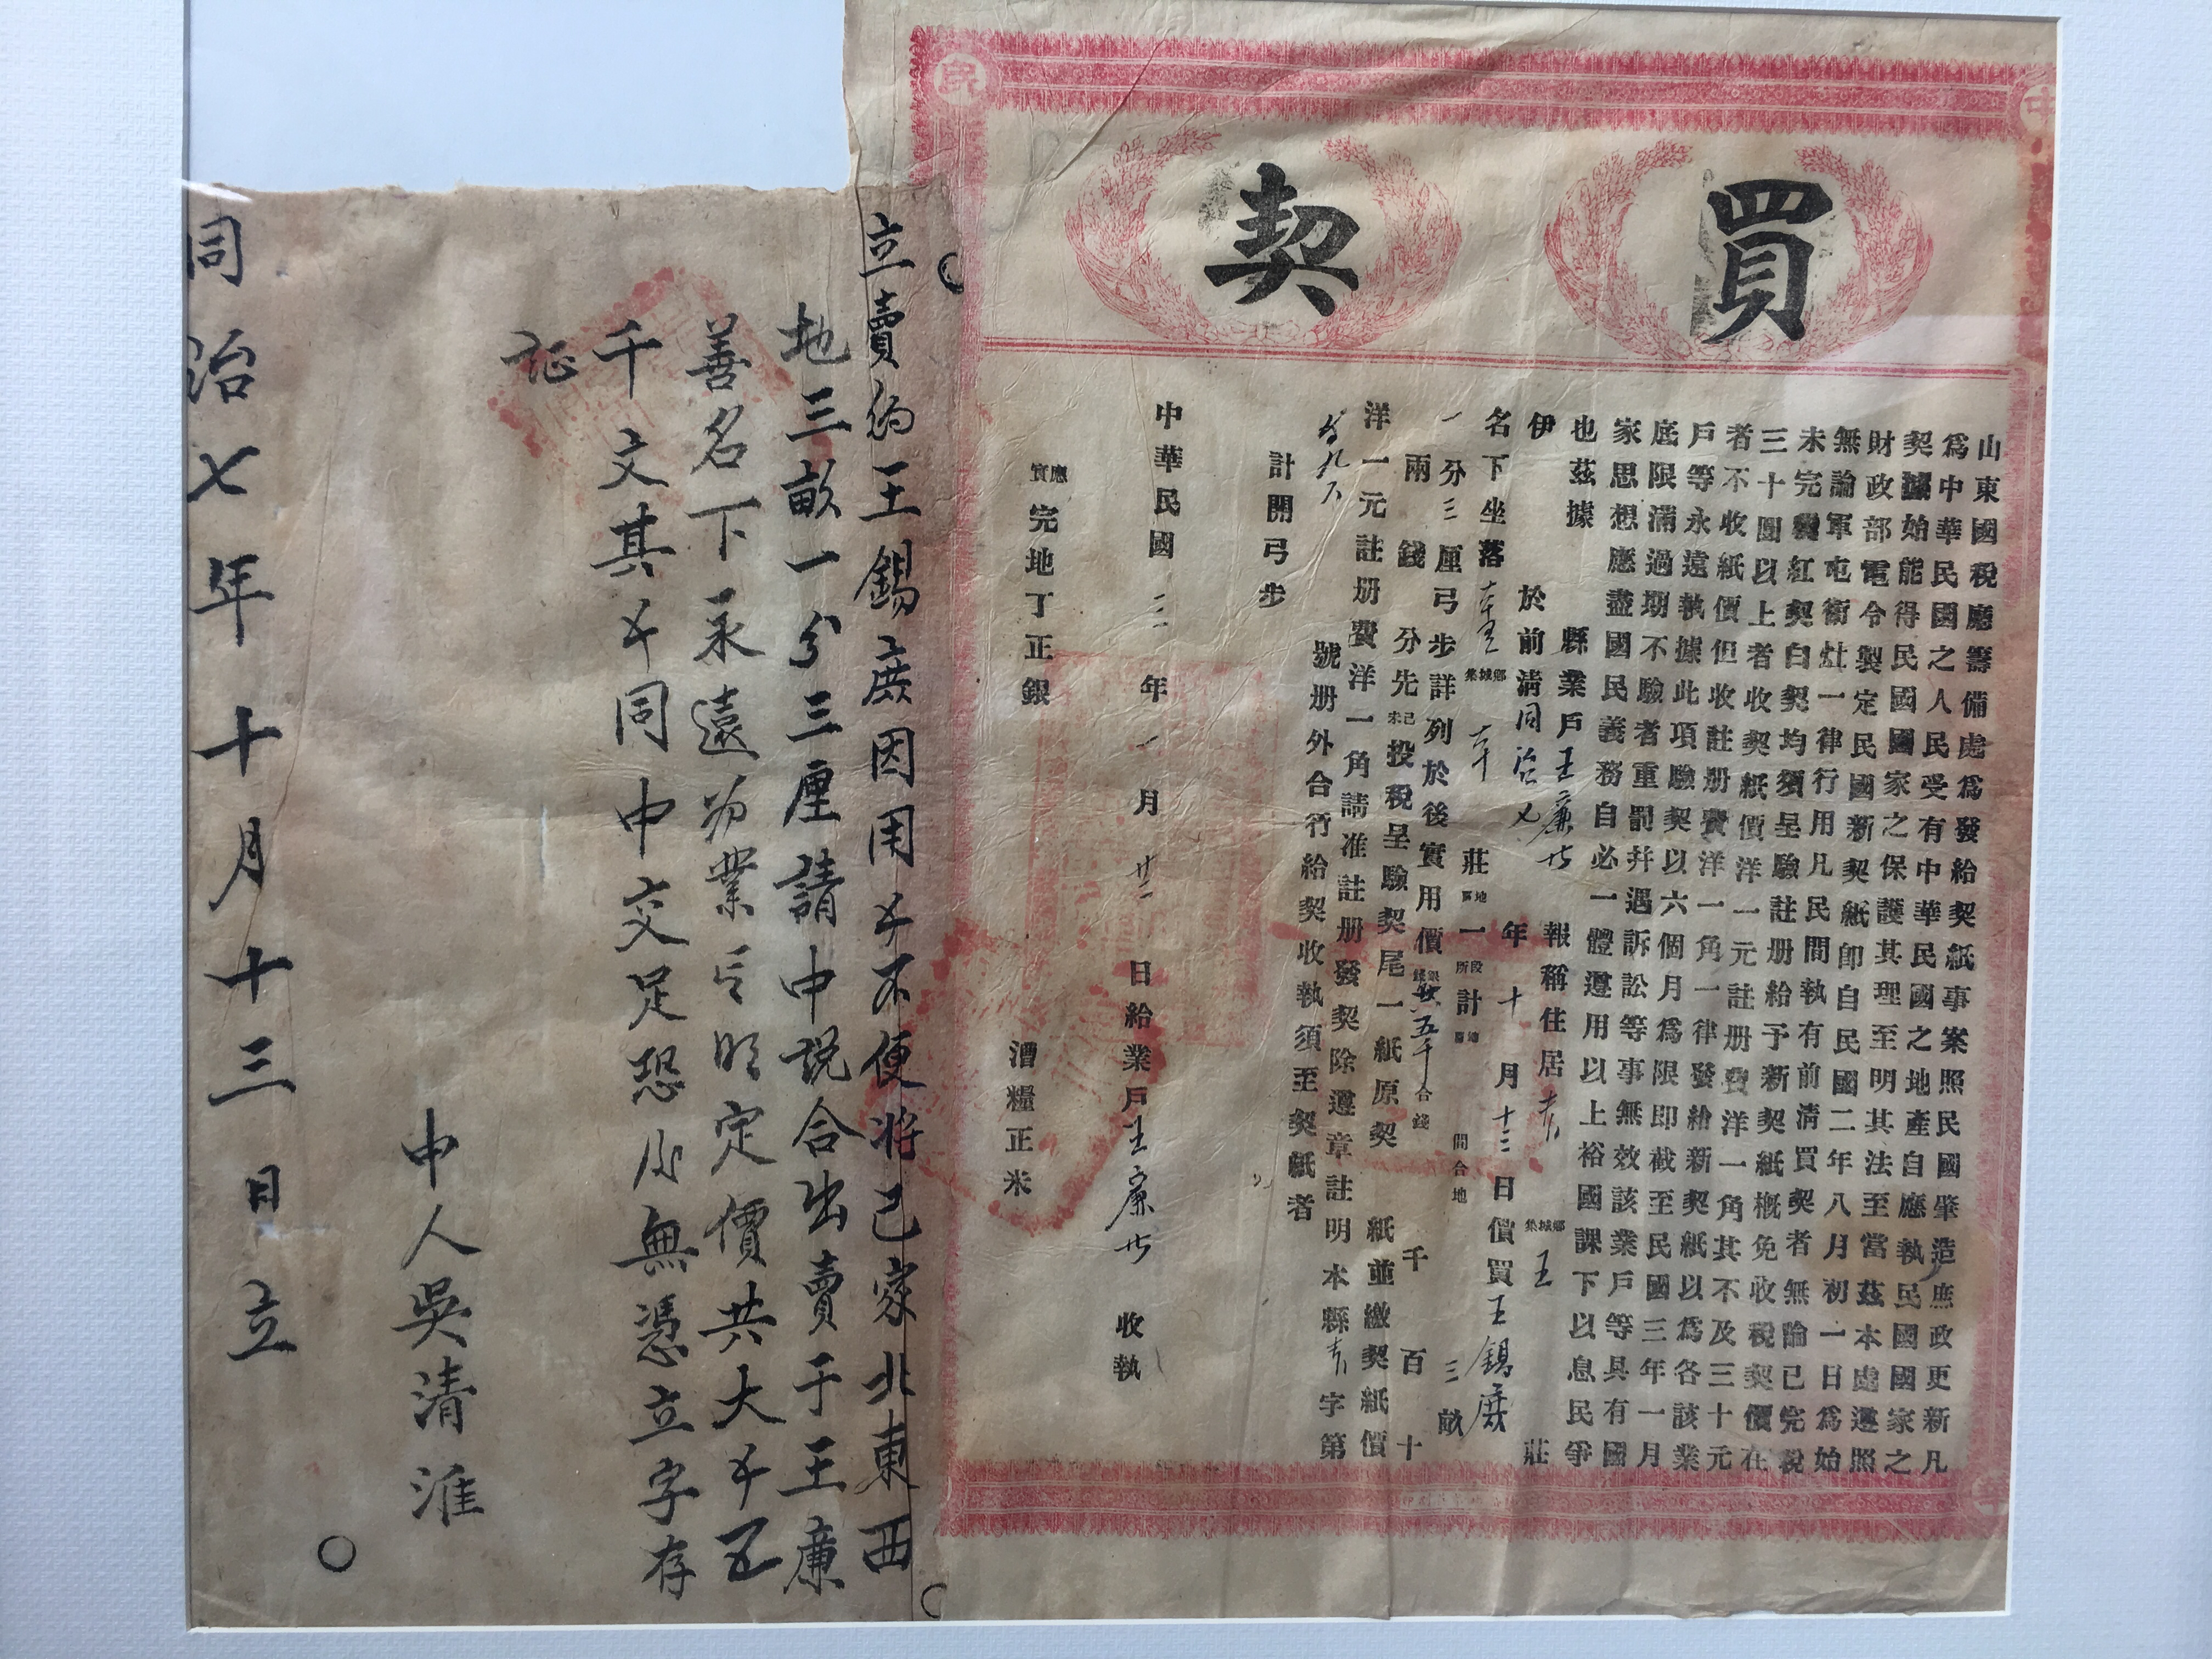 買契
山東國稅廳籌備處為發給契紙事案照民國肇造庶政更新凡
為中華民國之人民受有中華民國之地產自應執民國國家之
契據始能得民國國家之保護其理至明其法至當茲本處遵照
財政部電令製定民國新契紙即自民國二年八月初一日為始
無論軍屯衛灶一律行用凡民間執有前清買契者無論已完稅
未完稅紅契白契均須呈驗註册給予新契紙概免收稅契價在
三十圓以上者收契紙價洋一元註册費洋一角其不及三十元
者不收紙價但收註册費洋一角一律發給新契紙以為各該業
戶等永遠執據此項驗契以六個月為限即截至民國三年一月
底限滿過期不驗者重罰并遇訴訟等事無效該業戶等具有國
家思想應盡國民義務自必一體遵用以上裕國課下以息民爭
也茲據
縣業戶王廉 報稱住居 鄉城集 王 莊
伊 於前清同治七年十月十三日價買王錫庶
名下坐落 鄉城集 莊 地 一段所計 地 間合地 三畝
一分三厘弓步詳列於後實用價 五千合錢 千百十
兩錢分先已未投稅呈驗契尾一紙原契 紙並繳契紙價
洋一元註册費洋一角請准註册發契除遵章註明本縣 字第
號册外合行給契收執須至契紙者
計開弓步
中華民國三年一月廿三日給業戶王廉 收執
應實完地丁正銀 漕糧正米
立賣約王錫庶因用不便將己家北東西
地三畝一分三厘請中說合出賣于王廉
善名下永遠為業言明定價共大 五
千文其 同中交足恐後無憑立字存
証
中人吳清淮
同治七年十月十三日立